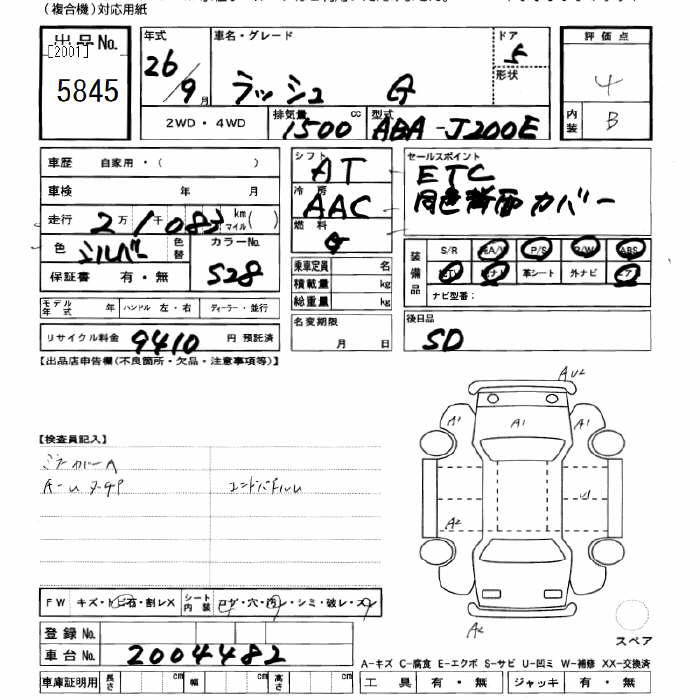 (複合機)対応用紙
出品No.
[2001]
5845
年式 26/9月
車名・グレード ラッシュ G
ドア 5
形状
2WD・4WD
排気量 1500 cc
型式 ABA-J200E
評価点 4
内装 B
車歴 自家用・( )
車検 年 月
走行 2万1千083 km マイル( )
色 シルバー 色替 カラーNo. S28
保証書 有・無
モデル年式 年 ハンドル 左・右 ディーラー・並行
リサイクル料金 9410 円 預託済
シフト AT
冷房 AAC
燃料 G
乗車定員 名
積載量 kg
総重量 kg
名変期限 月 日
セールスポイント
ETC
カバー
装備品 S/R A/W P/S P/W ABS
革シート 外ナビ エア
ナビ型番:
後日品
SD
【出品店申告欄(不良箇所・欠品・注意事項等)】
【検査員記入】
FW キズ・トビ石・割レX シート内装 コゲ・穴・汚レ・シミ・破レ・スレ
登録No.
車台No. 2004482
車庫証明用 長さ cm 幅 cm 高さ cm
AU2
A1 A1 A1
A2
U1
A2
スペア
A-キズ C-腐食 E-エクボ S-サビ U-凹ミ W-補修 XX-交換済
工具 有・無 ジャッキ 有・無